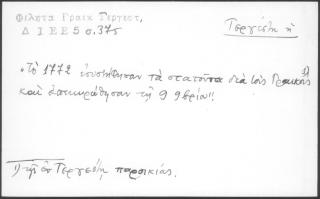 Φιλητα Γραικ Τεργεστ,
Δ Ι Ε Ε 5 σ.375
Τεργέστη ἡ
«Τὸ 1772 ἐσυστήθησαν τὰ στατοῦτα διὰ τοὺς Γραικοὺς 1)
καὶ ἐπεκυράθησαν τῇ 9 9βρίου!!
1) τῆς ἐν Τεργέστῃ παροικίας.